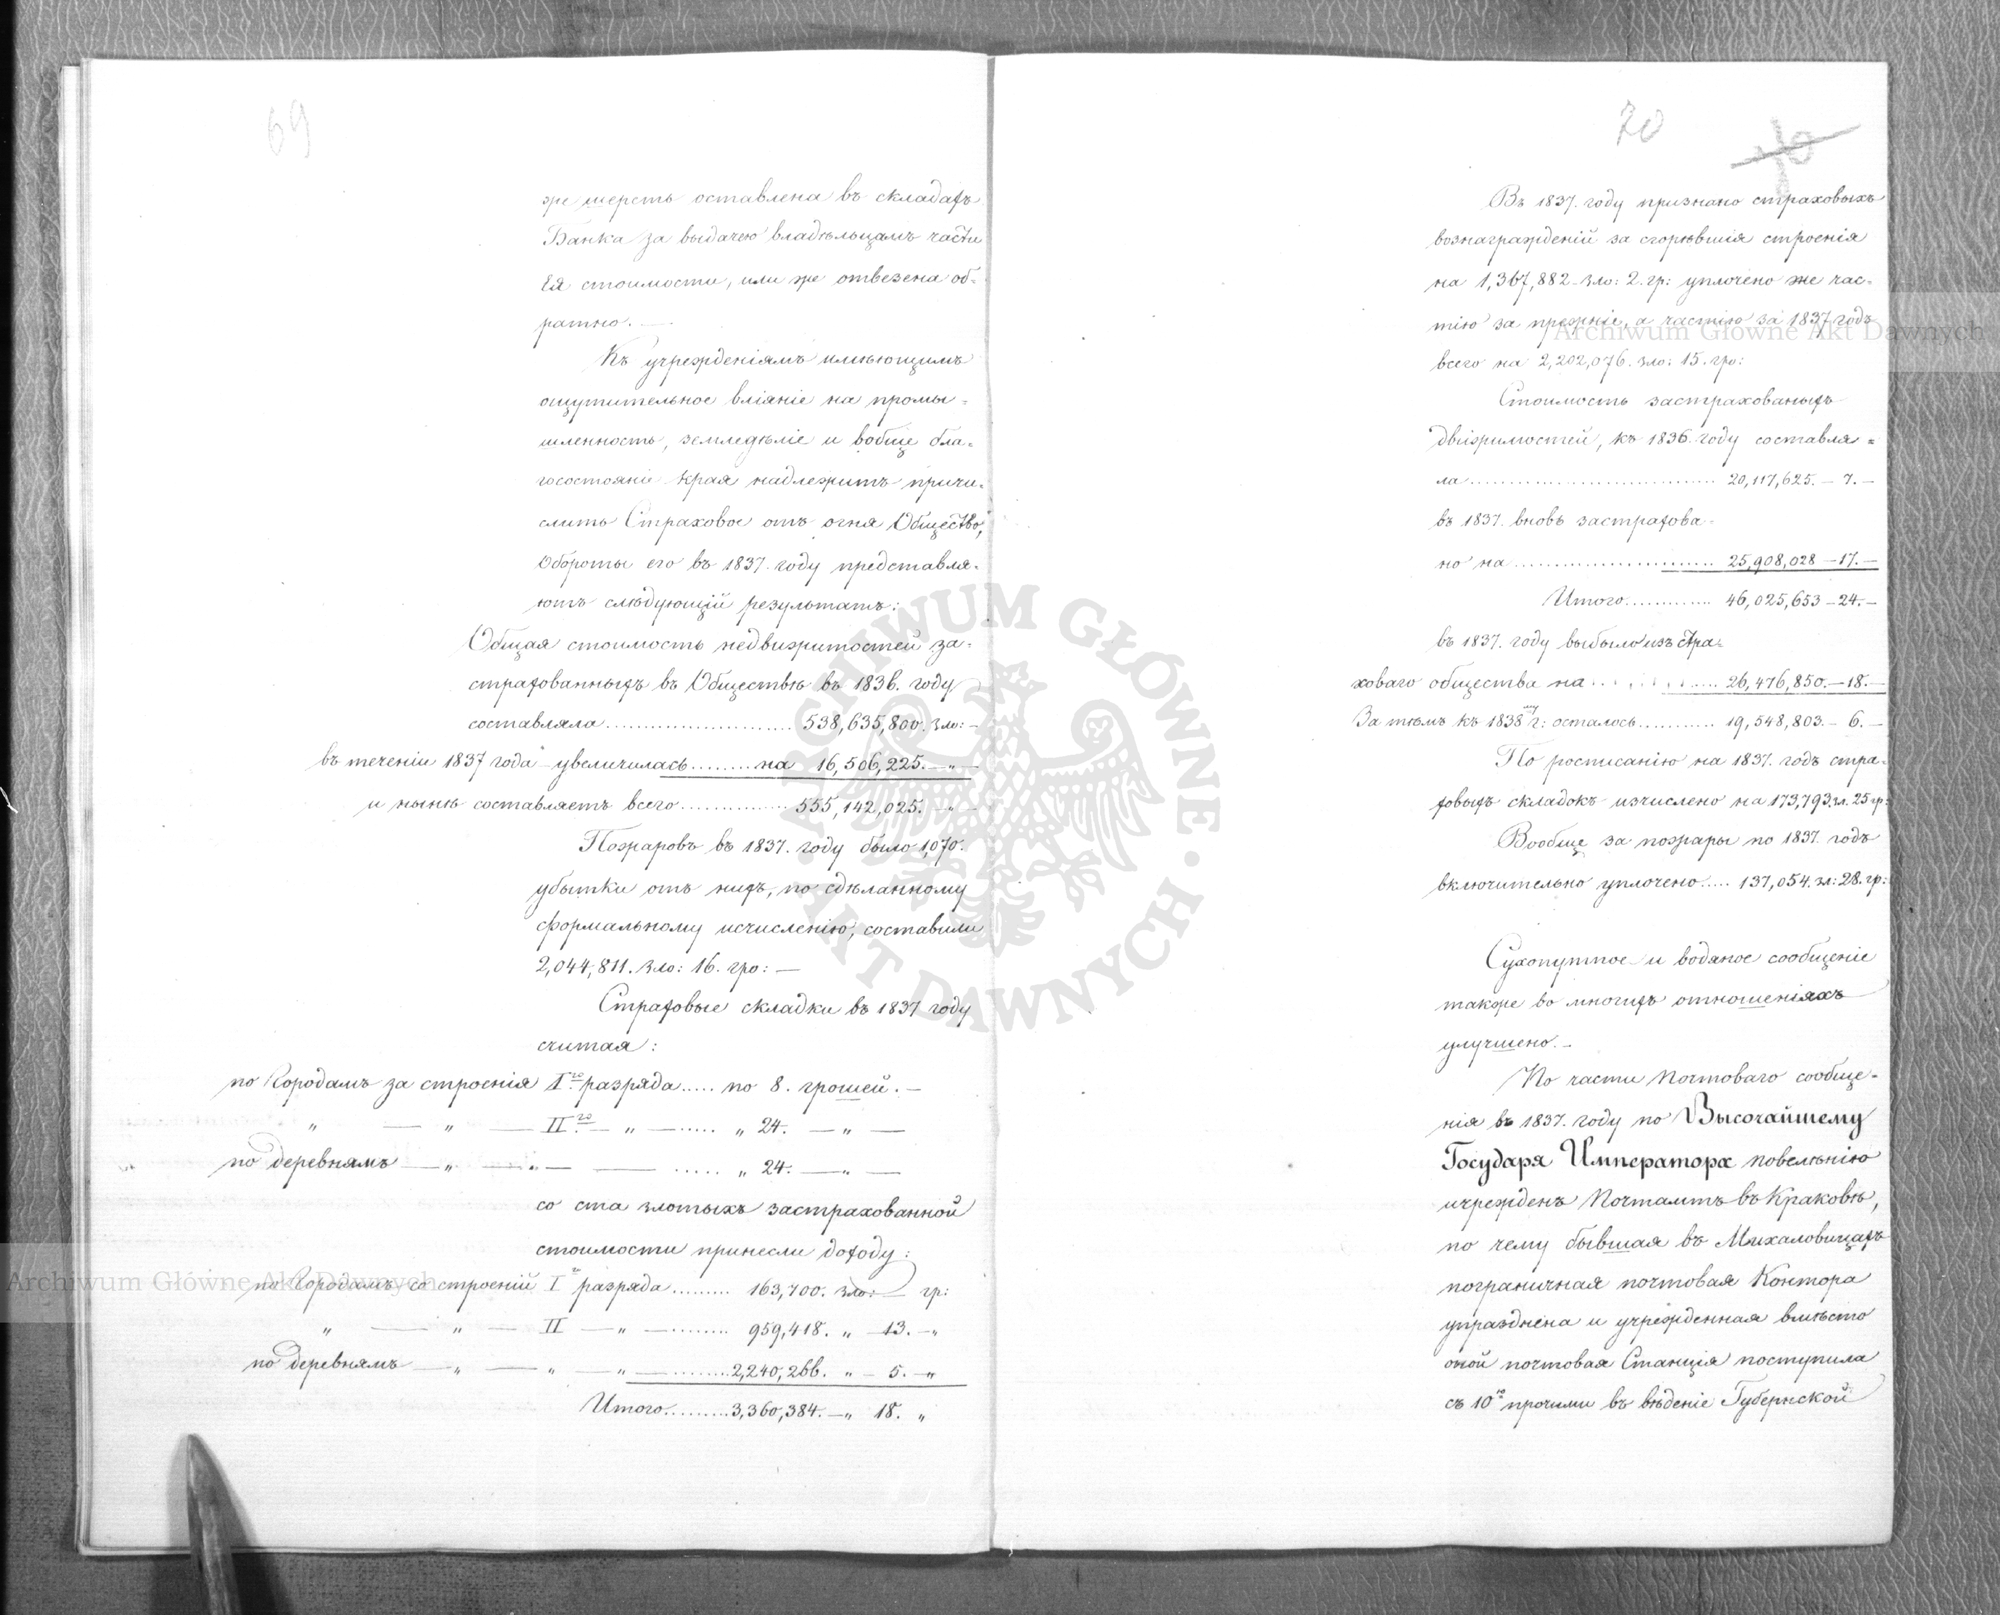 69
же шерсть оставлена въ складахъ
Банка за выдачею владѣльцамъ части
Ея стоимости, или же отвезена об-
ратно. —
Къ учрежденіямъ имѣющимъ
ощутительное вліяніе на промы-
шленность, земледѣліе и вобще бла-
госостояніе края надлежитъ причи-
слить Страховое отъ огня Общество,
Обороты его въ 1837. году представля-
ютъ слѣдующій результатъ:
Общая стоимость недвижимостей за-
страхованныхъ въ Обществѣ въ 1836. году
составляла.................. 538,635,800. зло: —
въ теченіи 1837 года увеличилась......... на 16,506,225. — „ —
и нынѣ составляетъ всего............... 555,142,025. — „ —
Пожаровъ въ 1837. году было 1,070.
убытки отъ нихъ, по сдѣланному
формальному исчисленію, составили
2,044,811. зло: 16. гро: —
Страховые складки въ 1837 году
считая:
по Городамъ за строенія Iго разряда..... по 8. грошей. —
„ — „ — IIго — „ — ..... „ 24. — „ —
по деревнямъ — „ — „ — — ..... „ 24. — „ —
со ста злотыхъ застрахованной
стоимости принесли доходу:
по Городамъ со строеній I разряда......... 163,700. зло: — гр:
„ — „ — II — „ — ......... 959,418. „ — 13. — „
по деревнямъ — „ — „ — „ — ......... 2,240,266. „ — 5. — „
Итого......... 3,360,384. — „ 18. „
70
70
Въ 1837. году признано страховыхъ
вознагражденій за сгорѣвшія строенія
на 1,367,882 зло: 2. гр: уплочено же час-
тію за прежніе, а частію за 1837 годъ
всего на 2,202,076. зло: 15. гро:
Стоимость застрахованыхъ
движимостей, къ 1836. году составля-
ла............................ 20,117,625. — 7. —
въ 1837. вновь застрахова-
но на........................ 25,908,028 — 17. —
Итого............ 46,025,653 — 24. —
въ 1837. году выбыло изъ стра-
ховаго общества на............ 26,476,850. — 18. —
За тѣмъ къ 1838му г: осталось........... 19,548,803. — 6. —
По росписанію на 1837. годъ стра-
ховыхъ складокъ изчислено на 173,793 зл. 25 гр:
Вообще за пожары по 1837. годъ
включительно уплочено..... 137,054. зл: 28. гр:
Сухопутное и водяное сообщеніе
также во многихъ отношеніяхъ
улучшено. —
По части Почтоваго сообще-
нія въ 1837. году по Высочайшему
Государя Императора повелѣнію
учрежденъ Почтамтъ въ Краковѣ,
по чему бывшая въ Михаловицахъ
пограничная почтовая Контора
упразднена и учрежденная вмѣсто
оной почтовая Станція поступила
съ 10ю прочими въ вѣденіе Губернской
Archiwum Główne Akt Dawnych
Archiwum Główne Akt Dawnych
ARCHIWUM GŁÓWNE · AKT DAWNYCH ·